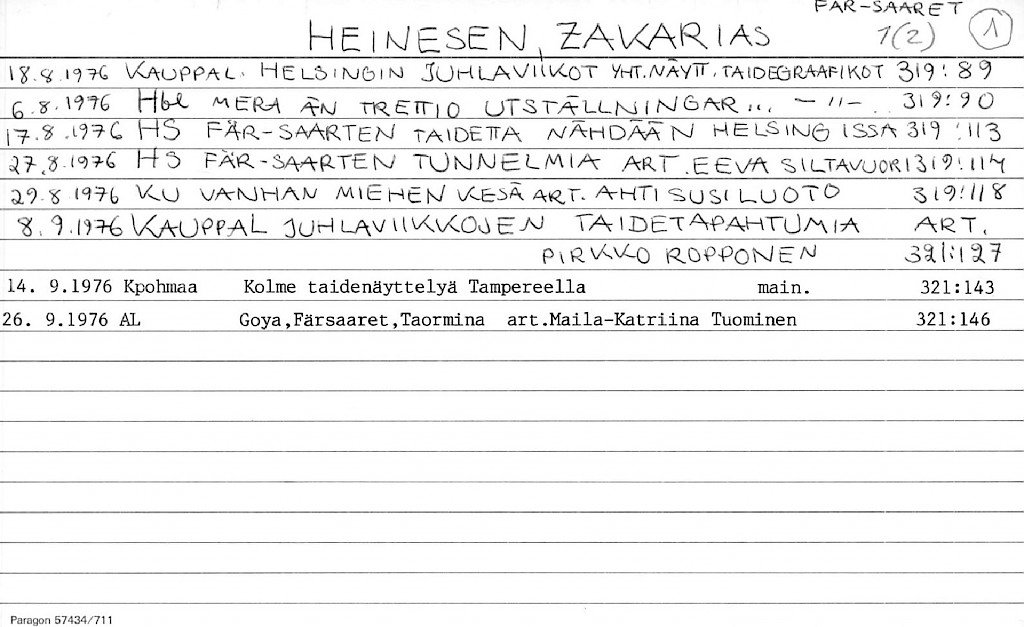 FÄR-SAARET
HEINESEN, ZAKARIAS 1(2) 1
18.8.1976 KAUPPAL. HELSINGIN JUHLAVIIKOT YHT.NÄYTT. TAIDEGRAAFIKOT 319:89
6.8.1976 Hbl MERA ÄN TRETTIO UTSTÄLLNINGAR... —"— 319:90
17.8.1976 HS FÄR-SAARTEN TAIDETTA NÄHDÄÄN HELSINGISSA 319:113
27.8.1976 HS FÄR-SAARTEN TUNNELMIA ART. EEVA SILTAVUORI 319:114
29.8 1976 KU VANHAN MIEHEN KESÄ ART. AHTI SUSILUOTO 319:118
8.9.1976 KAUPPAL JUHLAVIIKKOJEN TAIDETAPAHTUMIA ART.
PIRKKO ROPPONEN 321:127
14. 9.1976 Kpohmaa Kolme taidenäyttelyä Tampereella main. 321:143
26. 9.1976 AL Goya,Färsaaret,Taormina art.Maila-Katriina Tuominen 321:146
Paragon 57434/711